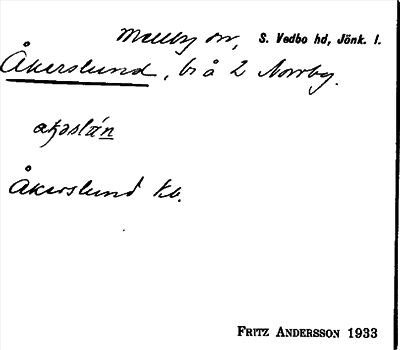 Mellby sn, S. Vedbo hd, Jönk. l.
Åkerslund, bi å 2 Norrby.
Åkerslund kb.
FRITZ ANDERSSON 1933